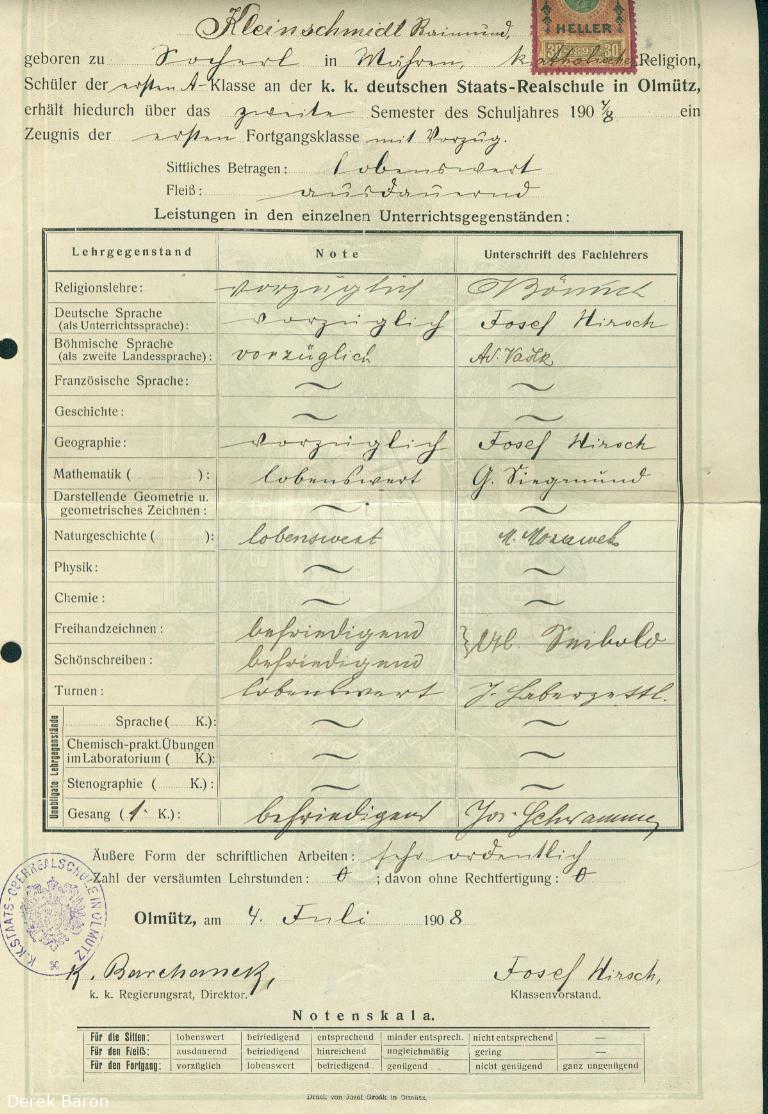 Kleinschmidt Raimund,
HELLER
30 1898 30
geboren zu in Mähren, katholischer Religion,
Schüler der ersten A-Klasse an der k. k. deutschen Staats-Realschule in Olmütz,
erhält hiedurch über das zweite Semester des Schuljahres 190 7/8 ein
Zeugnis der ersten Fortgangsklasse mit Vorzug.
Sittliches Betragen: lobenswert
Fleiß: ausdauernd
Leistungen in den einzelnen Unterrichtsgegenständen:
Lehrgegenstand Note Unterschrift des Fachlehrers
Religionslehre: vorzüglich
Deutsche Sprache (als Unterrichtssprache): vorzüglich Josef Hirsch
Böhmische Sprache (als zweite Landessprache): vorzüglich Ad. Vašek
Französische Sprache: ~ ~
Geschichte: ~ ~
Geographie: vorzüglich Josef Hirsch
Mathematik ( ): lobenswert G. Siegmund
Darstellende Geometrie u. geometrisches Zeichnen: ~ ~
Naturgeschichte ( ): lobenswert
Physik: ~ ~
Chemie: ~ ~
Freihandzeichnen: befriedigend } Seibold
Schönschreiben: befriedigend
Turnen: lobenswert J. Haberzettl.
Unobligate Lehrgegenstände
Sprache ( K.): ~ ~
Chemisch-prakt. Übungen im Laboratorium ( K.): ~ ~
Stenographie ( K.): ~ ~
Gesang (1. K.): befriedigend
Äußere Form der schriftlichen Arbeiten: sehr ordentlich
Zahl der versäumten Lehrstunden: 0 ; davon ohne Rechtfertigung: 0
Olmütz, am 4. Juli 1908
K.K. STAATS-OBERREALSCHULE IN OLMÜTZ
K. Barchanek, Josef Hirsch,
k. k. Regierungsrat, Direktor. Klassenvorstand.
Notenskala.
Für die Sitten: lobenswert befriedigend entsprechend minder entsprech. nicht entsprechend —
Für den Fleiß: ausdauernd befriedigend hinreichend ungleichmäßig gering —
Für den Fortgang: vorzüglich lobenswert befriedigend genügend nicht genügend ganz ungenügend
Druck von Josef Groák in Olmütz.
Derek Baron